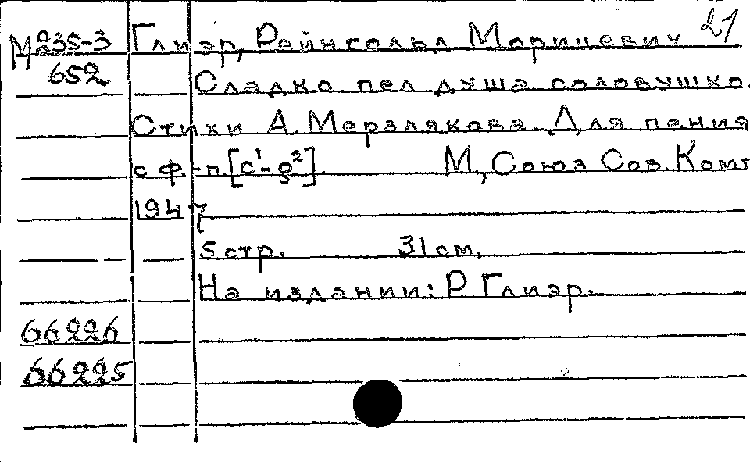 М235-3 Глиэр, Рейнгольд Морицевич 21
652 Сладко пел душа соловушко.
Стихи А. Мерзлякова. Для пения
с ф-п [c¹-g²]. М, Союз Сов. Комп
1947
5 стр. 31 см.
На издании: Р Глиэр.
66226
66225